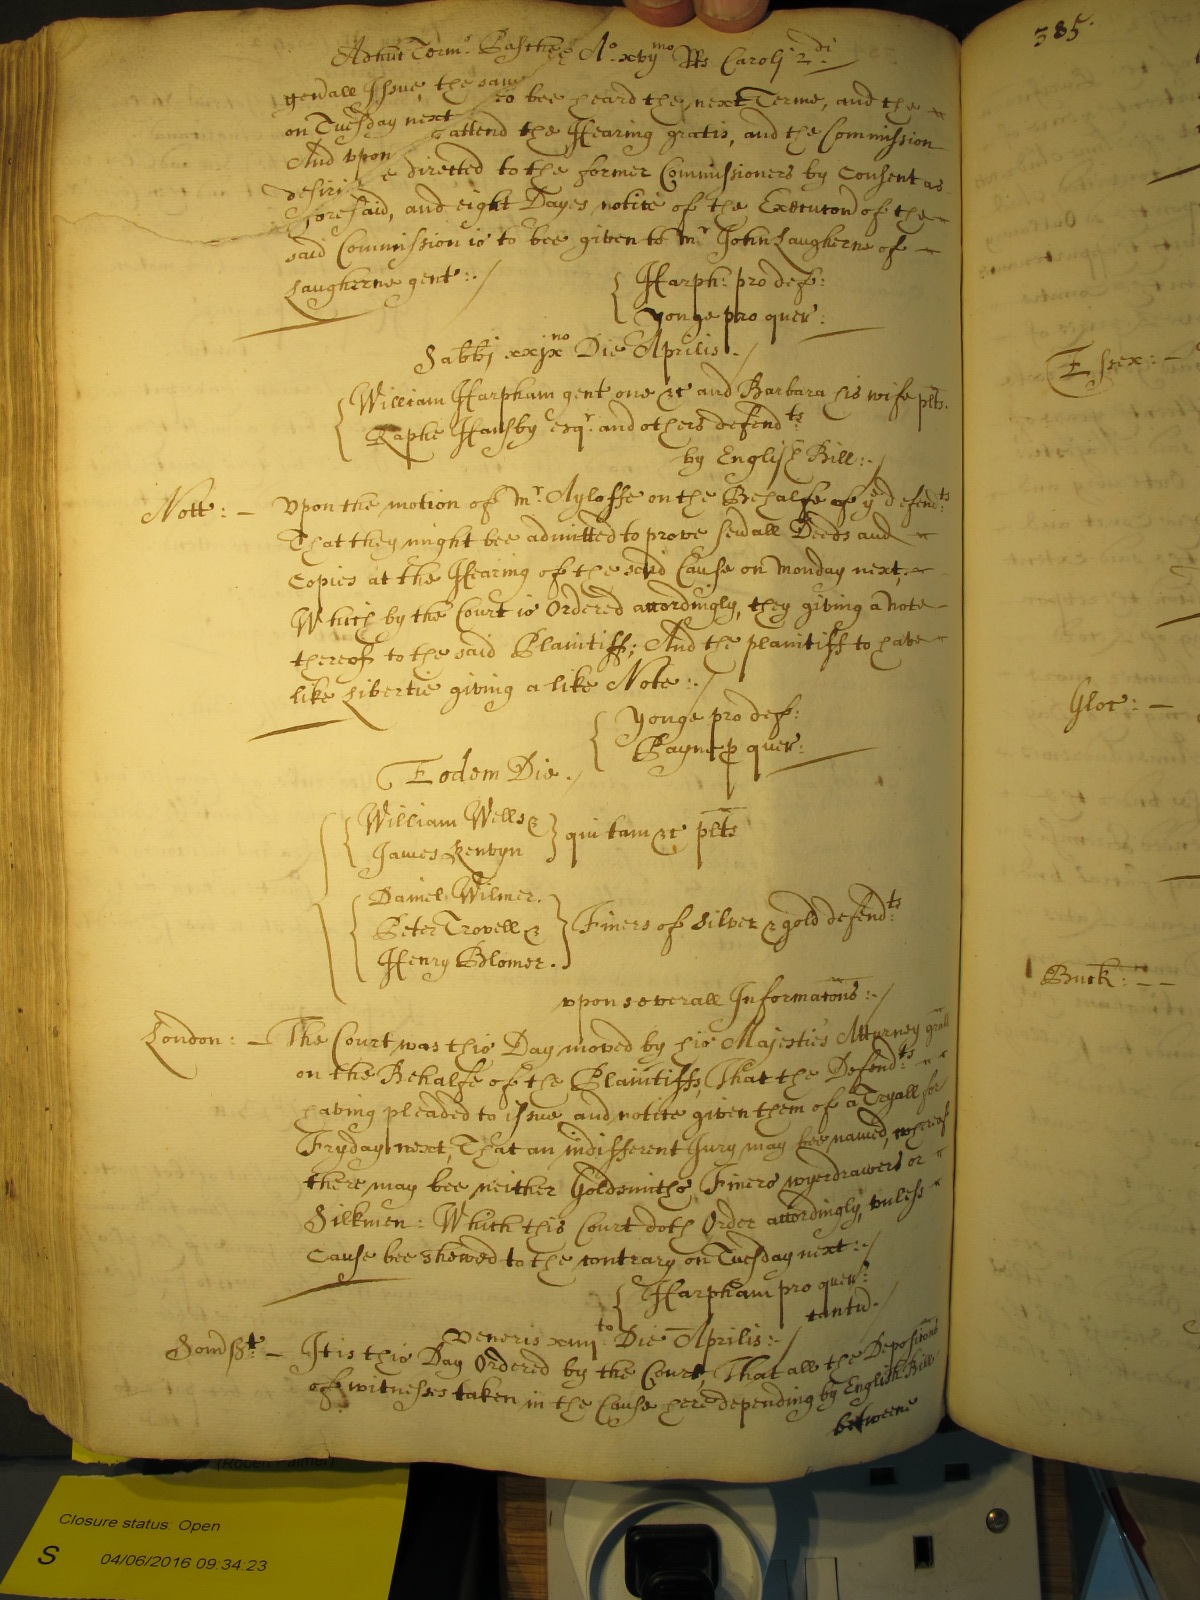 Adhuc Term: Pasche Ao. xvijmo Rs Caroli 2di
generall Issue, the same
to bee heard the next Terme, and the
on Tuesday next
attend the Hearing gratis, and the Commission
And upon
directed to the former Commissioners by Consent as
desiri
foresaid, and eight Dayes notice of the Execucon of the
said Commission is to bee given to Mr. John Laugherne of
Laugherne gent:
Harph: pro def:
Yonge pro quer:
385.
Sabbi xxixno Die Aprilis
William Harpham gent one &c and Barbara his wife plts.
Raphe Hansby esqr. and others defendts
by English Bill:
Nott: - Upon the motion of Mr. Ayloffe on the Behalfe of ye defendts
That they might bee admitted to prove sevall Deeds and
Copies at the Hearing of the said Cause on Monday next,
Which by the Court is Ordered accordingly, they giving a note
thereof to the said Plaintiff; And the plaintiff to have
like Libertie giving a like Note:
Yonge pro def:
Payne p quer:
Eodem Die
William Wells &
James Renvyn
qui tam &c plts
Daniel Wilmer.
Peter Trovell &
Henry Blomer.
Finers of silver & gold defendts
upon severall Informacons:
London: - The Court was this Day moved by his Majesties Atturney grall
on the Behalfe of the Plaintiffs, That the Defendts
having pleaded to issue and notice given them of a Tryall for
Fryday next, That an indifferent Jury may bee named, whereof
there may bee neither Goldsmiths, Finers wyerdrawers or
Silkmen: Which this Court doth Order accordingly, unless
Cause bee shewed to the contrary on Tuesday next:
Harpham pro quer:
tantu.
Veneris xiiijto Die Aprilis:
Somdst: - It is this Day Ordered by the Court, That all the Depositons
of witnesses taken in the Cause here depending by English Bill
betweene
Essex: -
Gloc: -
Buck: - -
Closure status: Open
S 04/06/2016 09:34:23